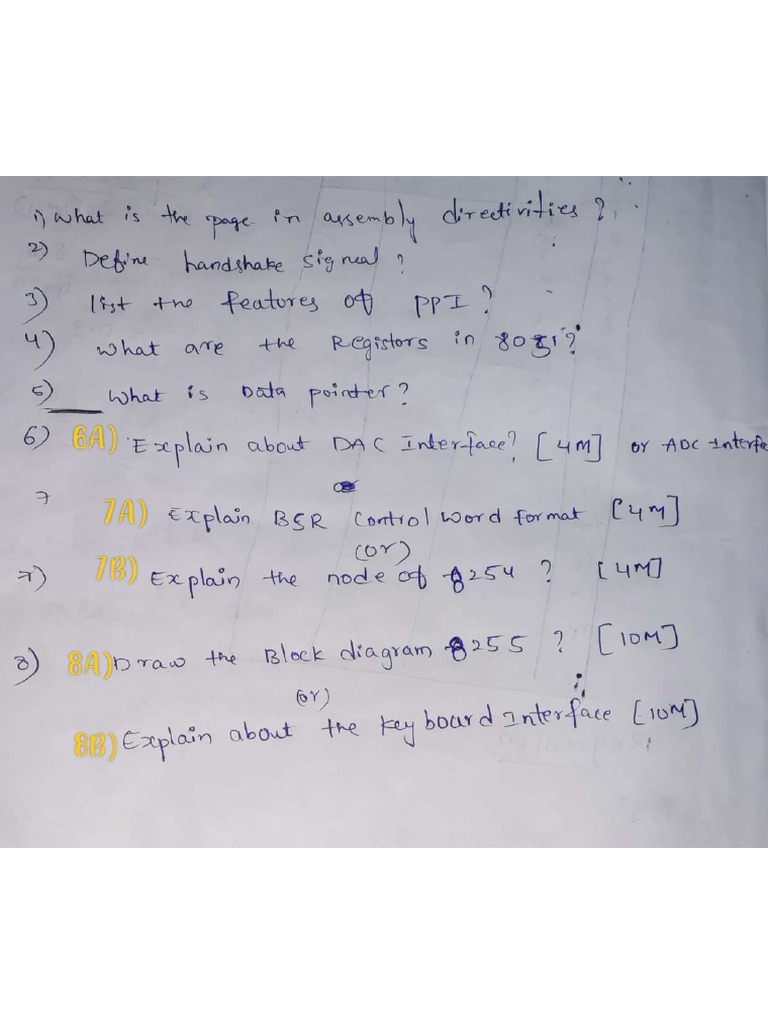 1) What is the page in assembly directivities ?
2) Define handshake signal ?
3) list the features of PPI ?
4) what are the Registors in 8051 ?
5) what is Data pointer ?
6) 6A) Explain about DAC Interface? [4M] or ADC Interfa
7
7A) Explain BSR control word format [4M]
(or)
7) 7B) Explain the node of 8254 ? [4M]
8) 8A) Draw the Block diagram 8255 ? [10M]
(or)
8B) Explain about the keyboard Interface [10M]